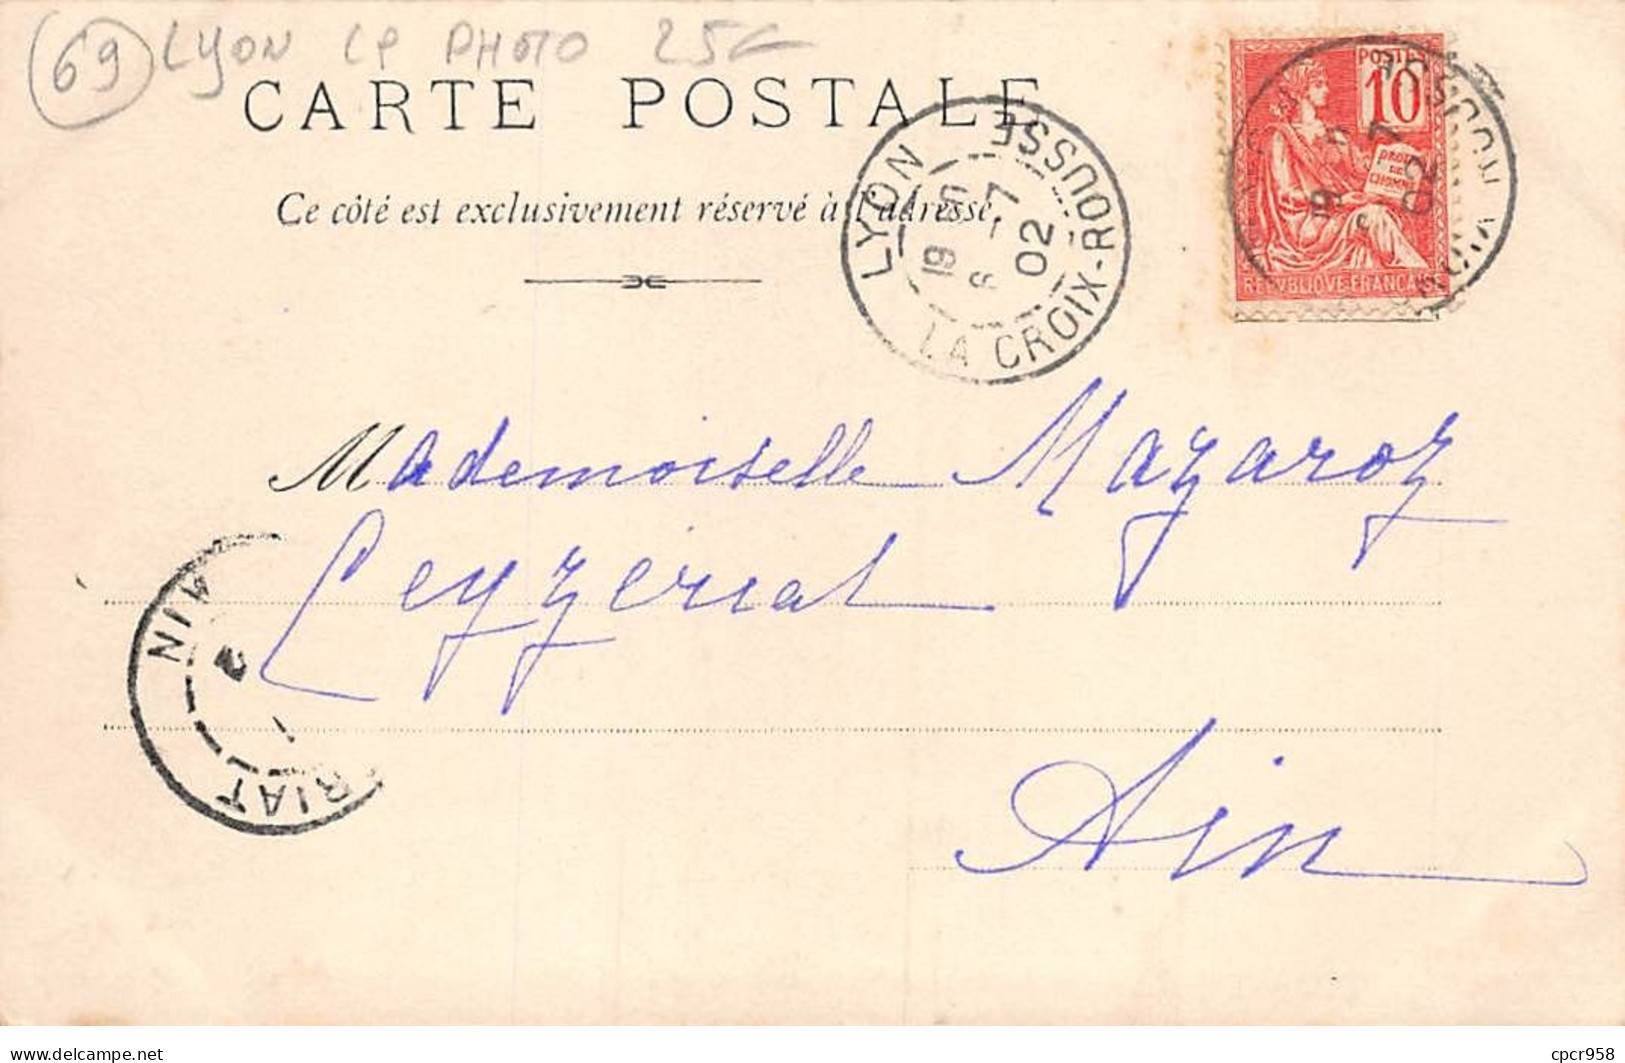 69 LYON CP PHOTO 25
CARTE POSTALE
Ce côté est exclusivement réservé à l'adresse.
LYON
LA CROIX-ROUSSE
19
6 - 7
02
POSTES
10
DROITS
DE
L'HOMME
REPVBLIQVE FRANÇAISE
Mademoiselle Mazaroz
Ceyzeriat
Ain
RIAT
AIN
cpcr958